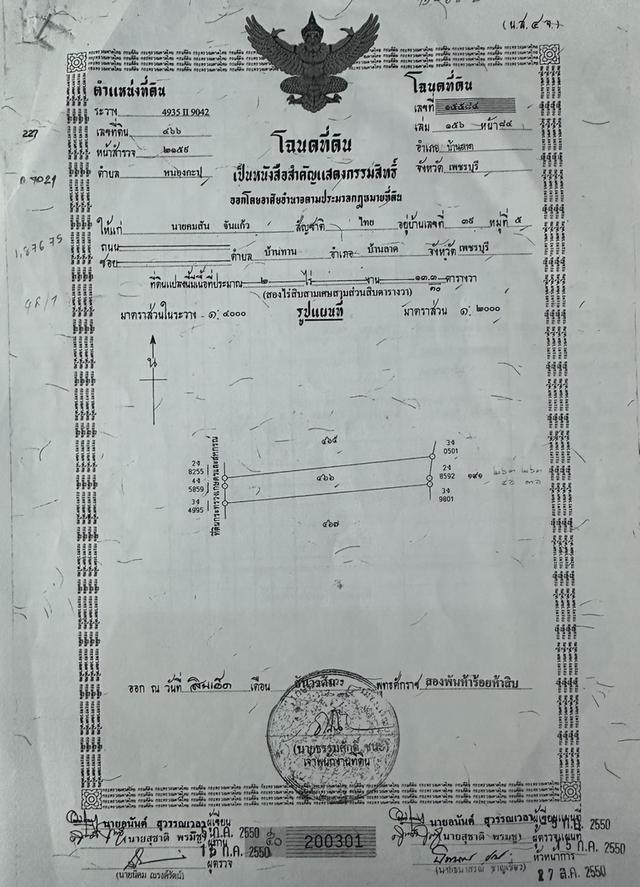 (น.ส. ๔ จ.)
ตำแหน่งที่ดิน
ระวาง 4935 II 9042
เลขที่ดิน ๔๖๖
หน้าสำรวจ ๒๑๕๙
ตำบล หนองกะปุ
โฉนดที่ดิน
เลขที่ ๑๕๕๘๔
เล่ม ๑๕๖ หน้า ๘๔
อำเภอ บ้านลาด
จังหวัด เพชรบุรี
โฉนดที่ดิน
เป็นหนังสือสำคัญแสดงกรรมสิทธิ์
ออกโดยอาศัยอำนาจตามประมวลกฎหมายที่ดิน
227
ให้แก่ นายคมสัน จันแก้ว สัญชาติ ไทย อยู่บ้านเลขที่ ๓๙ หมู่ที่ ๕
ถนน
ซอย ตำบล บ้านทาน อำเภอ บ้านลาด จังหวัด เพชรบุรี
ที่ดินแปลงนี้มีเนื้อที่ประมาณ ๒ ไร่ งาน ๑๓ ๓/๑๐ ตารางวา
(สองไร่สิบสามเศษสามส่วนสิบตารางวา)
มาตราส่วนในระวาง ๑: ๔๐๐๐ รูปแผนที่ มาตราส่วน ๑: ๒๐๐๐
น
๔๖๕
3-ง
0501
ที่ดินกระทรวงเกษตรและสหกรณ์
2-ง
8255
4-ง
5859
3-ง
4995
๔๖๖
2-ง
8592
3-ง
9801
๑๙๑
๔๖๗
ออก ณ วันที่ สิบเอ็ด เดือน ธันวาคม พุทธศักราช สองพันห้าร้อยห้าสิบ
เจ้าพนักงานที่ดิน
นายอนันต์ สุวรรณเวลา ผู้เขียน
(นายสุชาติ พรมชู)
ก.ค. 2550
ก.ค. 2550
ผู้ตรวจ
200301
นายอนันต์ สุวรรณเวลา ผู้เขียนแผนที่
(นายสุชาติ พรมชู)
2550
ผู้ตรวจแผนที่
ก.ค. 2550
หัวหน้าการ
27 ส.ค. 2550